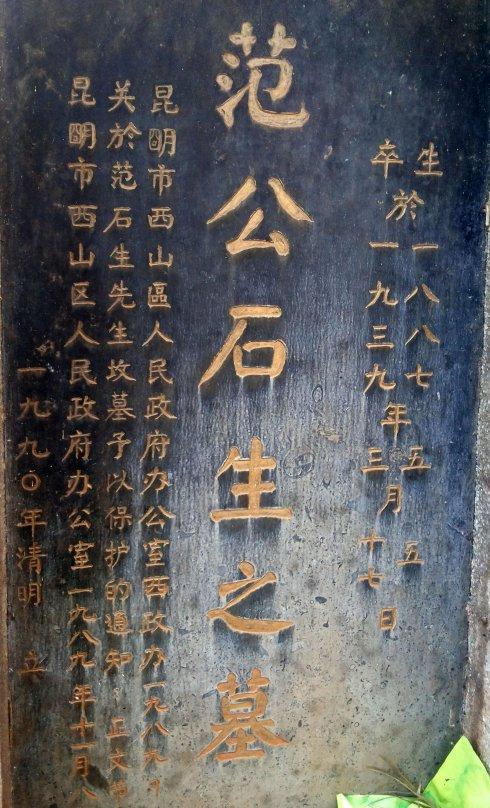 生一八八七五五
卒於一九三九年三月十七日
范公石生之墓
昆明市西山區人民政府办公室西政办一九八九
关於范石生先生坟墓予以保护的通知 正文
昆明市西山区人民政府办公室一九八九年十一月八
一九九〇年清明 立